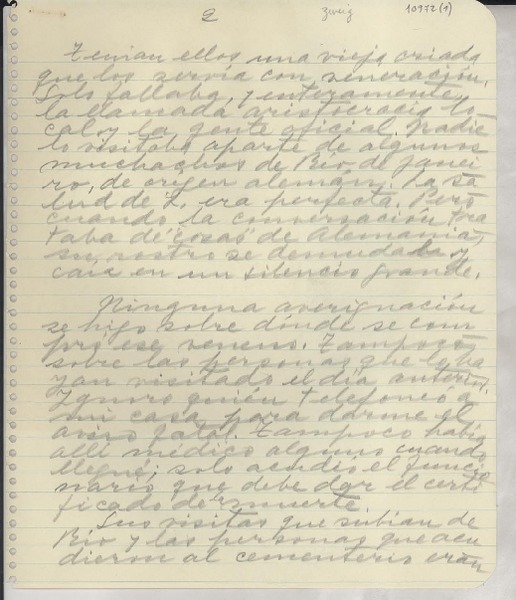 2
zweig
10972(1)
Tenían ellos una vieja criada
que los servía con veneración.
Solo fallaba, y enteramente,
la llamada aristocracia lo-
cal y la gente oficial. Nadie
lo visitaba aparte de algunos
muchachos de Río de Janei-
ro, de origen alemán. La sa-
lud de Z. era perfecta. Pero
cuando la conversación tra-
taba de "cosas" de Alemania,
su rostro se demudaba y
caía en un silencio grande.
Ninguna averiguación
se hizo sobre dónde se com-
pró ese veneno. Tampoco
sobre las personas que lo ha-
yan visitado el día anterior.
Ignoro quién telefoneó a
mi casa para darme el
aviso fatal. Tampoco había
allí médico alguno cuando
llegué; solo acudió el funcio-
nario que debe dar el certi-
ficado de la muerte.
Las visitas que subían de
Río y las personas que acu-
dieron al cementerio eran